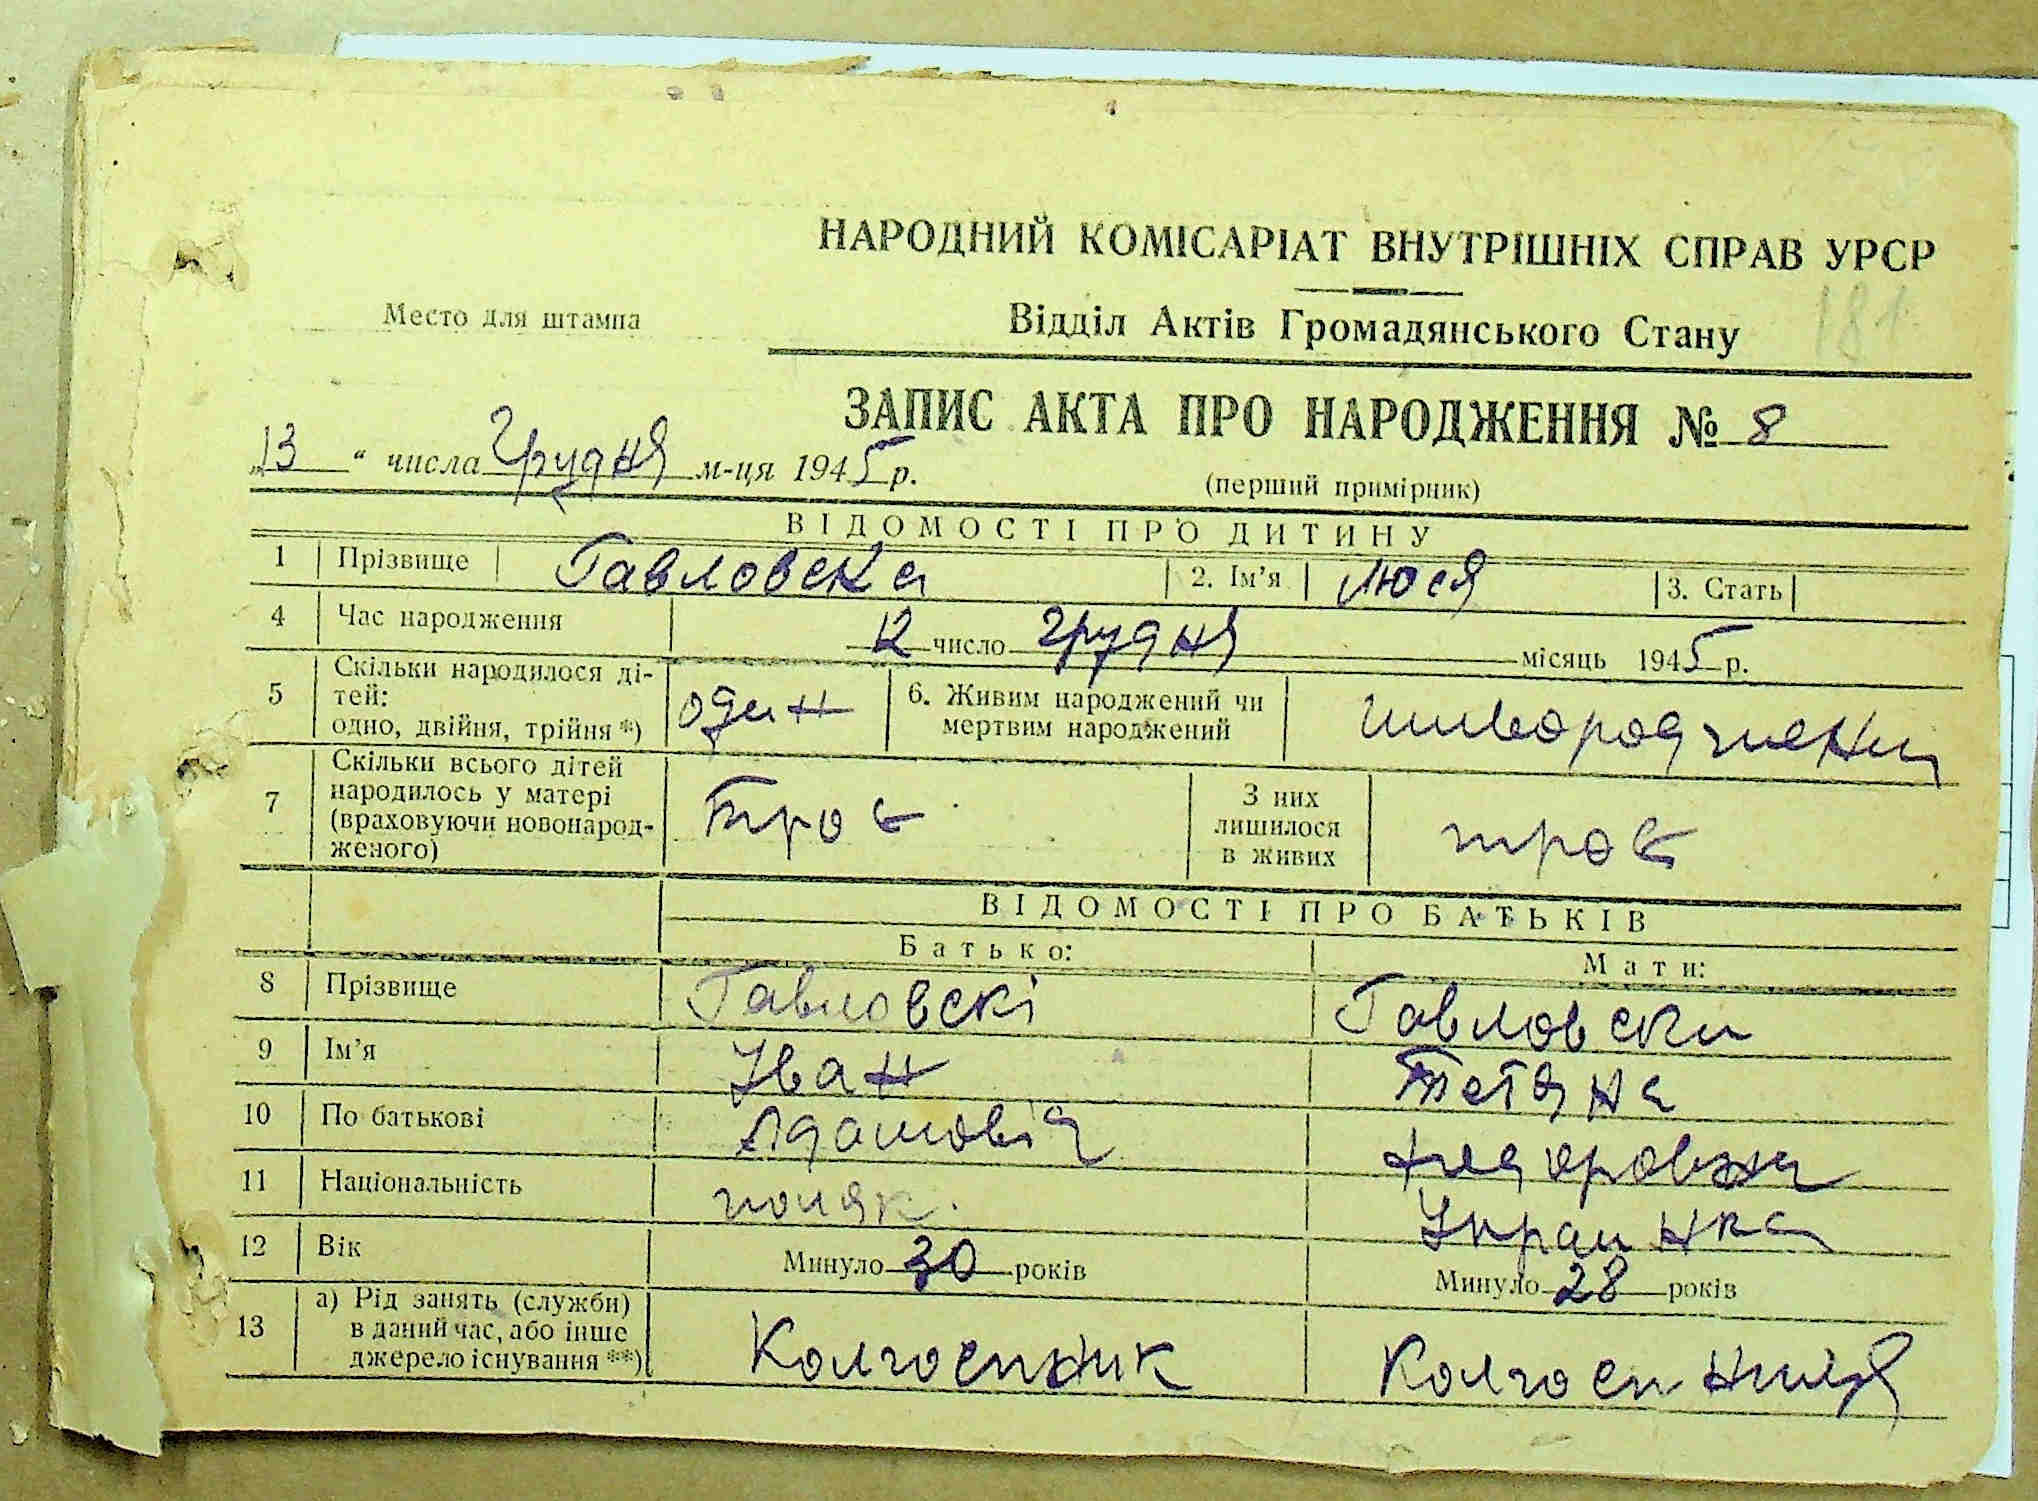 НАРОДНИЙ КОМІСАРІАТ ВНУТРІШНІХ СПРАВ УРСР
Место для штампа
Відділ Актів Громадянського Стану
181
ЗАПИС АКТА ПРО НАРОДЖЕННЯ № 8
„13“ числа Грудня м-ця 1945 р.
(перший примірник)
ВІДОМОСТІ ПРО ДИТИНУ
1 Прізвище Гавловска 2. Ім’я Люся 3. Стать
4 Час народження 12 число Грудня місяць 1945 р.
5 Скільки народилося ді-
тей:
одно, двійня, трійня *) один
6. Живим народжений чи
мертвим народжений
7 Скільки всього дітей
народилось у матері
(враховуючи новонарод-
женого) троє
З них
лишилося
в живих троє
ВІДОМОСТІ ПРО БАТЬКІВ
Батько: Мати:
8 Прізвище Гавловскі Гавловска
9 Ім’я Іван Тетяна
10 По батькові Адамовіч
11 Національність поляк. Украинка
12 Вік Минуло 30 років Минуло 28 років
13 а) Рід занять (служби)
в даний час, або інше
джерело існування **) Колгоспник Колгоспниця